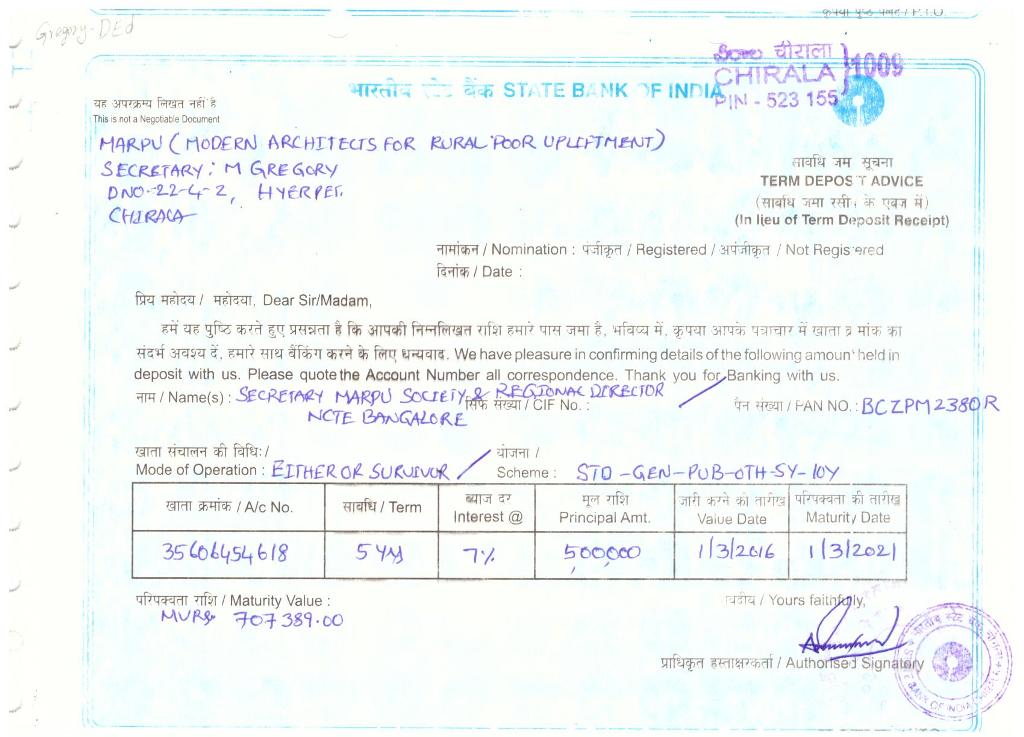 कृपया पृष्ठ पलटें / P.T.O.
Gregory-DEd
చీరాల चीराला
CHIRALA
PIN - 523 155
1009
भारतीय स्टेट बैंक STATE BANK OF INDIA
यह अपरक्रम्य लिखत नहीं है
This is not a Negotiable Document
MARPU (MODERN ARCHITECTS FOR RURAL POOR UPLIFTMENT)
SECRETARY: M GREGORY
DNO-22-4-2, HYERPET.
CHIRALA
सावधि जमा सूचना
TERM DEPOSIT ADVICE
(सावधि जमा रसीद के एवज में)
(In lieu of Term Deposit Receipt)
नामांकन / Nomination : पंजीकृत / Registered / अपंजीकृत / Not Registered
दिनांक / Date :
प्रिय महोदय / महोदया, Dear Sir/Madam,
हमें यह पुष्ठि करते हुए प्रसन्नता है कि आपकी निम्नलिखत राशि हमारे पास जमा है, भविष्य में, कृपया आपके पत्राचार में खाता क्रमांक का
संदर्भ अवश्य दें, हमारे साथ बैंकिंग करने के लिए धन्यवाद. We have pleasure in confirming details of the following amount held in
deposit with us. Please quote the Account Number all correspondence. Thank you for Banking with us.
नाम / Name(s) : SECRETARY MARPU SOCIETY & REGIONAL DIRECTOR
NCTE BANGALORE
सिफ संख्या / CIF No. :
पैन संख्या / PAN NO. : BCZPM2380R
खाता संचालन की विधि: /
Mode of Operation : EITHER OR SURVIVOR
योजना /
Scheme : STD-GEN-PUB-OTH-5Y-10Y
खाता क्रमांक / A/c No. सावधि / Term ब्याज दर Interest @ मूल राशि Principal Amt. जारी करने की तारीख Value Date परिपक्वता की तारीख Maturity Date
35606454618 5 yrs 7% 5,00,000 1/3/2016 1/3/2021
परिपक्वता राशि / Maturity Value :
MVRs 707389.00
भवदीय / Yours faithfully,
प्राधिकृत हस्ताक्षरकर्ता / Authorised Signatory
भारतीय स्टेट बैंक
STATE BANK OF INDIA